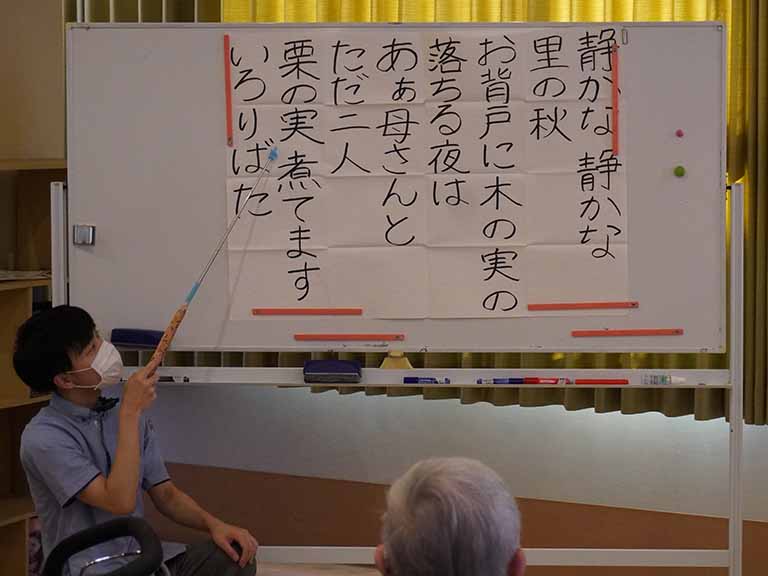 静かな 静かな
里の秋
お背戸に木の実の
落ちる夜は
あぁ母さんと
ただ二人
栗の実 煮てます
いろりばた